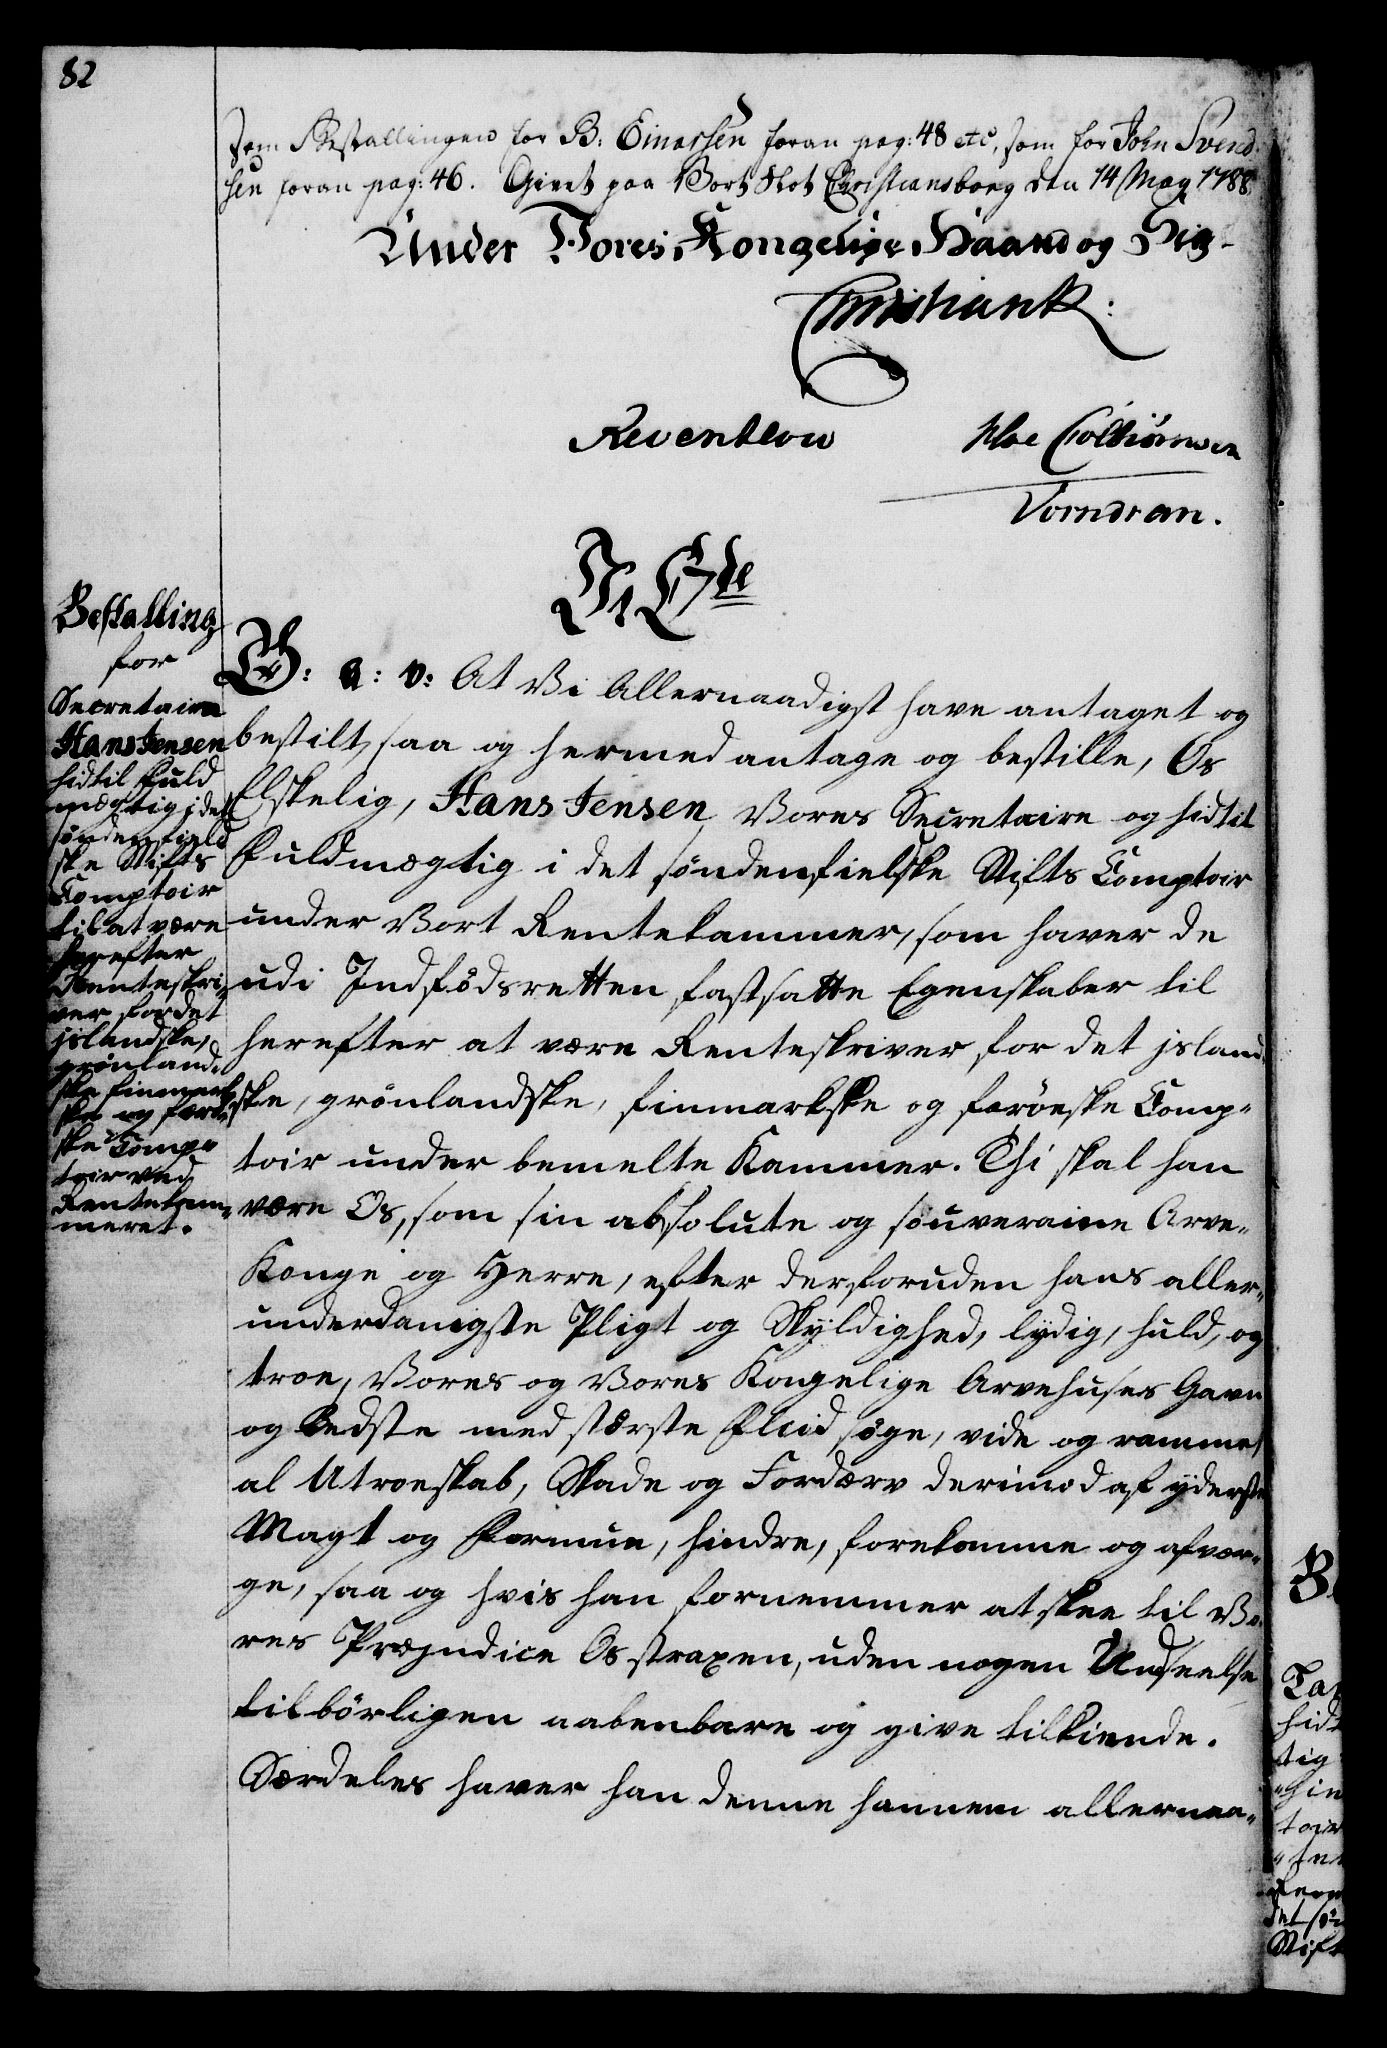 82
som Bestallingen for B: Einarsen foran pag: 48 etc, som for John Svend¬
sen foran pag: 46. Givet paa Vort Slot Christiansborg den 14 May 1788
Under Vores Kongelige Haand og Sig¬
Christian R:
Reventlow
Vorndran.
Bestalling
for
Secretaire
Hans Jensen
hidtil Fuld
mægtig i det
søndenfield
ske Stifts
Comptoir
til at være
herefter
Renteskri¬
ver for det
jslandske,
grønland¬
ske finmark
ske og færöe
ske Comp¬
toir ved
Rentekam¬
meret.
G: A: V: At Vi Allernaadigst have antaget og
bestilt, saa og hermed antage og bestille, Os
Elskelig, Hans Jensen, Vores Secretaire og hidtil
Fuldmægtig i det søndenfielske Stifts Comptoir
under Vort Rentekammer, som haver de
udi Indfødsretten fastsatte Egenskaber til
herefter at være Renteskriver for det jsland¬
ske, grønlandske, finmarkske og færöeske Comp¬
toir under bemelte Kammer. Thi skal han
være Os, som sin absolute og souveraine Arve¬
Konge og Herre, efter derforuden hans aller¬
underdanigste Pligt og Skyldighed, lydig, huld, og
troe, Vores og Vores Kongelige Arvehuses Gavn
og Bedste med største Fliid søge, vide og ramme,
al Utroeskab, Skade og Fordærv derimod af yderste
Magt og Formue, hindre, forekomme og afvær¬
ge, saa og hvis han fornemmer at skee til Vo¬
res Præjudice Os straxen, uden nogen Undseelse
tilbörligen aabenbare og give tilkiende.
Særdeles haver han denne hannem allernaa¬